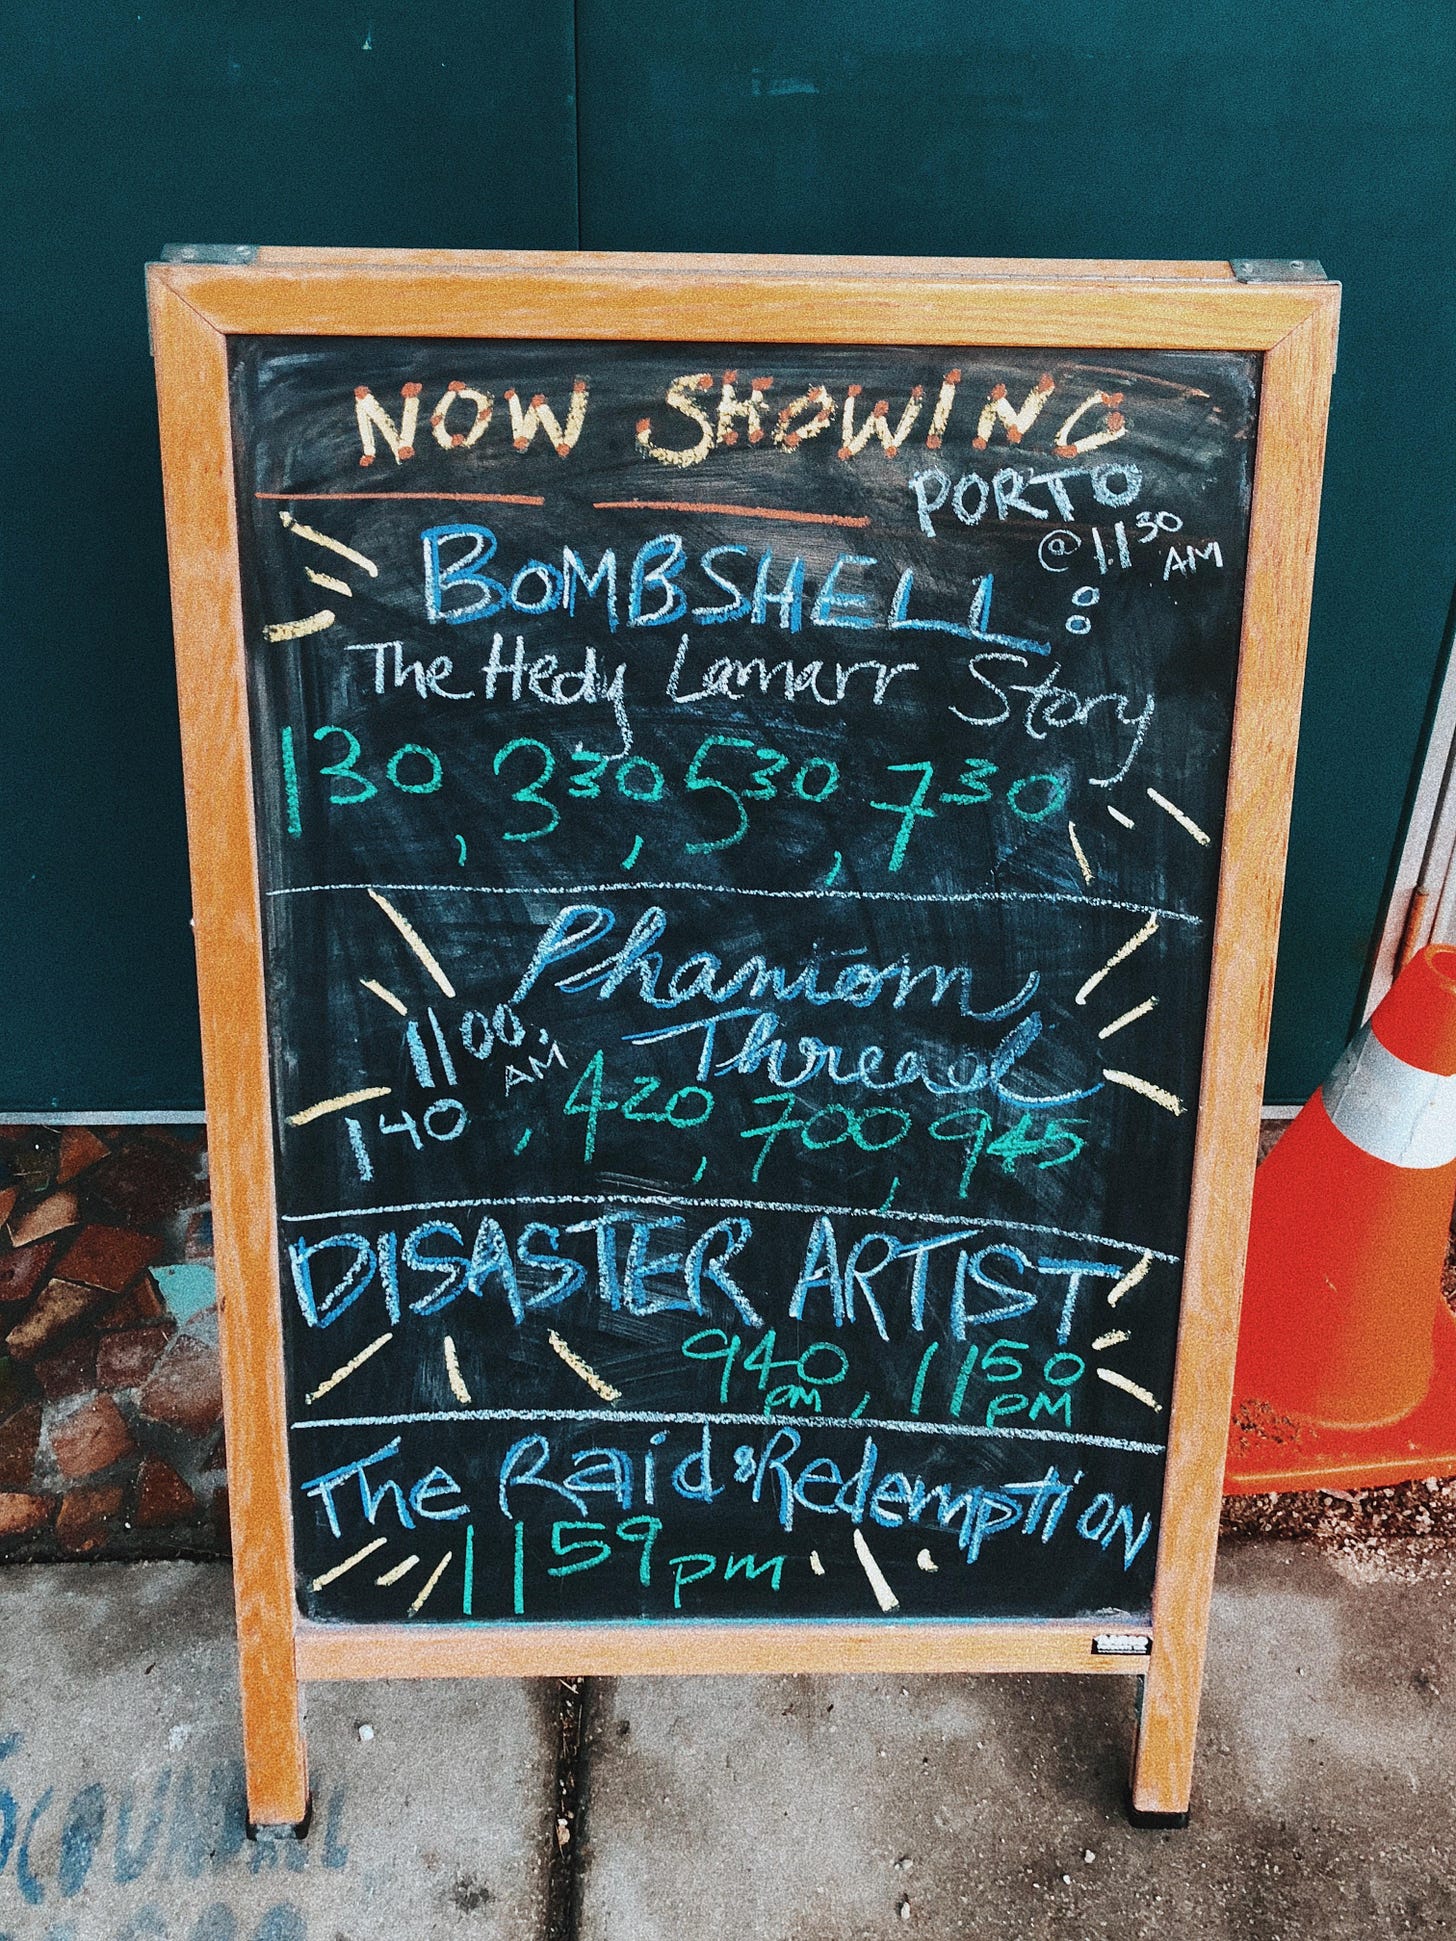 NOW SHOWING
PORTO
@ 11 30 AM
BOMBSHELL:
The Hedy Lamarr Story
130, 330, 530, 730
Phantom
Thread
11 00 AM
140, 420, 700, 945
DISASTER ARTIST
940 pm, 1150 PM
The Raid: Redemption
1159 pm